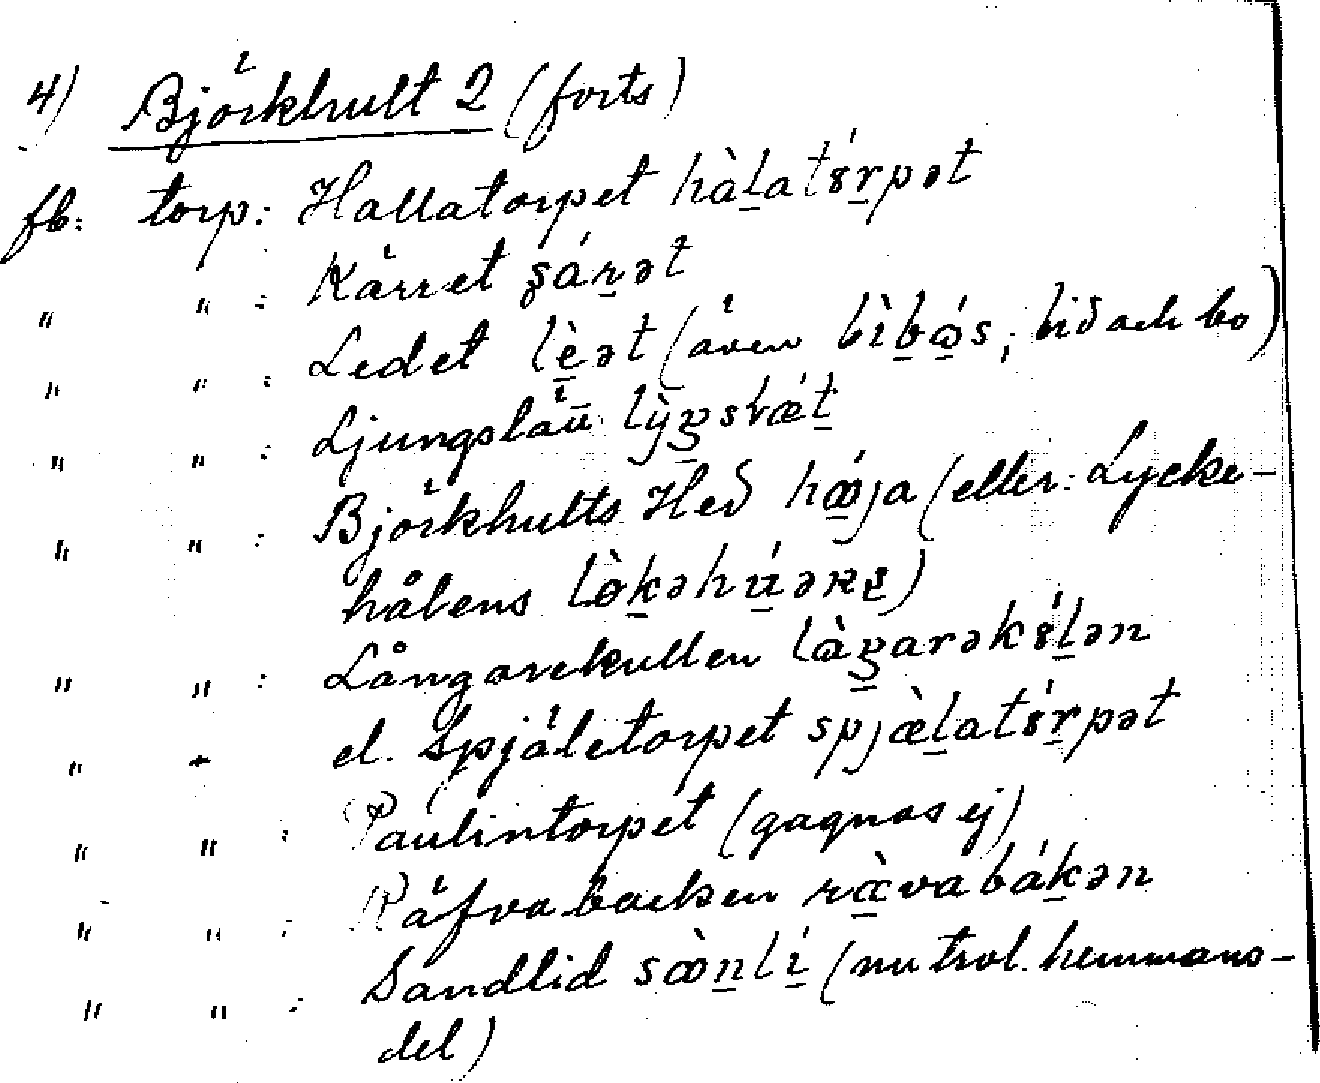 4) Björkhult 2 (forts)
fb. torp: Hallatorpet hàl̲atɤ́r̲pət
" " : Kärret ʂár̲ət
" " : Ledet lè̲ət (även bìb̲ǿs, bið ach bo)
" " : Ljungslätt lỳŋ̲slǽt̲
" " : Björkhults Heð hǿ̲ja (eller: Lycke-
hålens lòk̲əhú̲əns)
" " : Långarekullen là̲ŋ̲arəkɤ́l̲ən
" " el. Spjäletorpet spjæ̀l̲atɤ́r̲pət
" " : Paulintorpet (gagnas ej)
" " : Räfvabacken ræ̲̀vabák̲ən
" " : Sandlid sæ̀n̲lí̲ (nu trol. hemmans-
del)